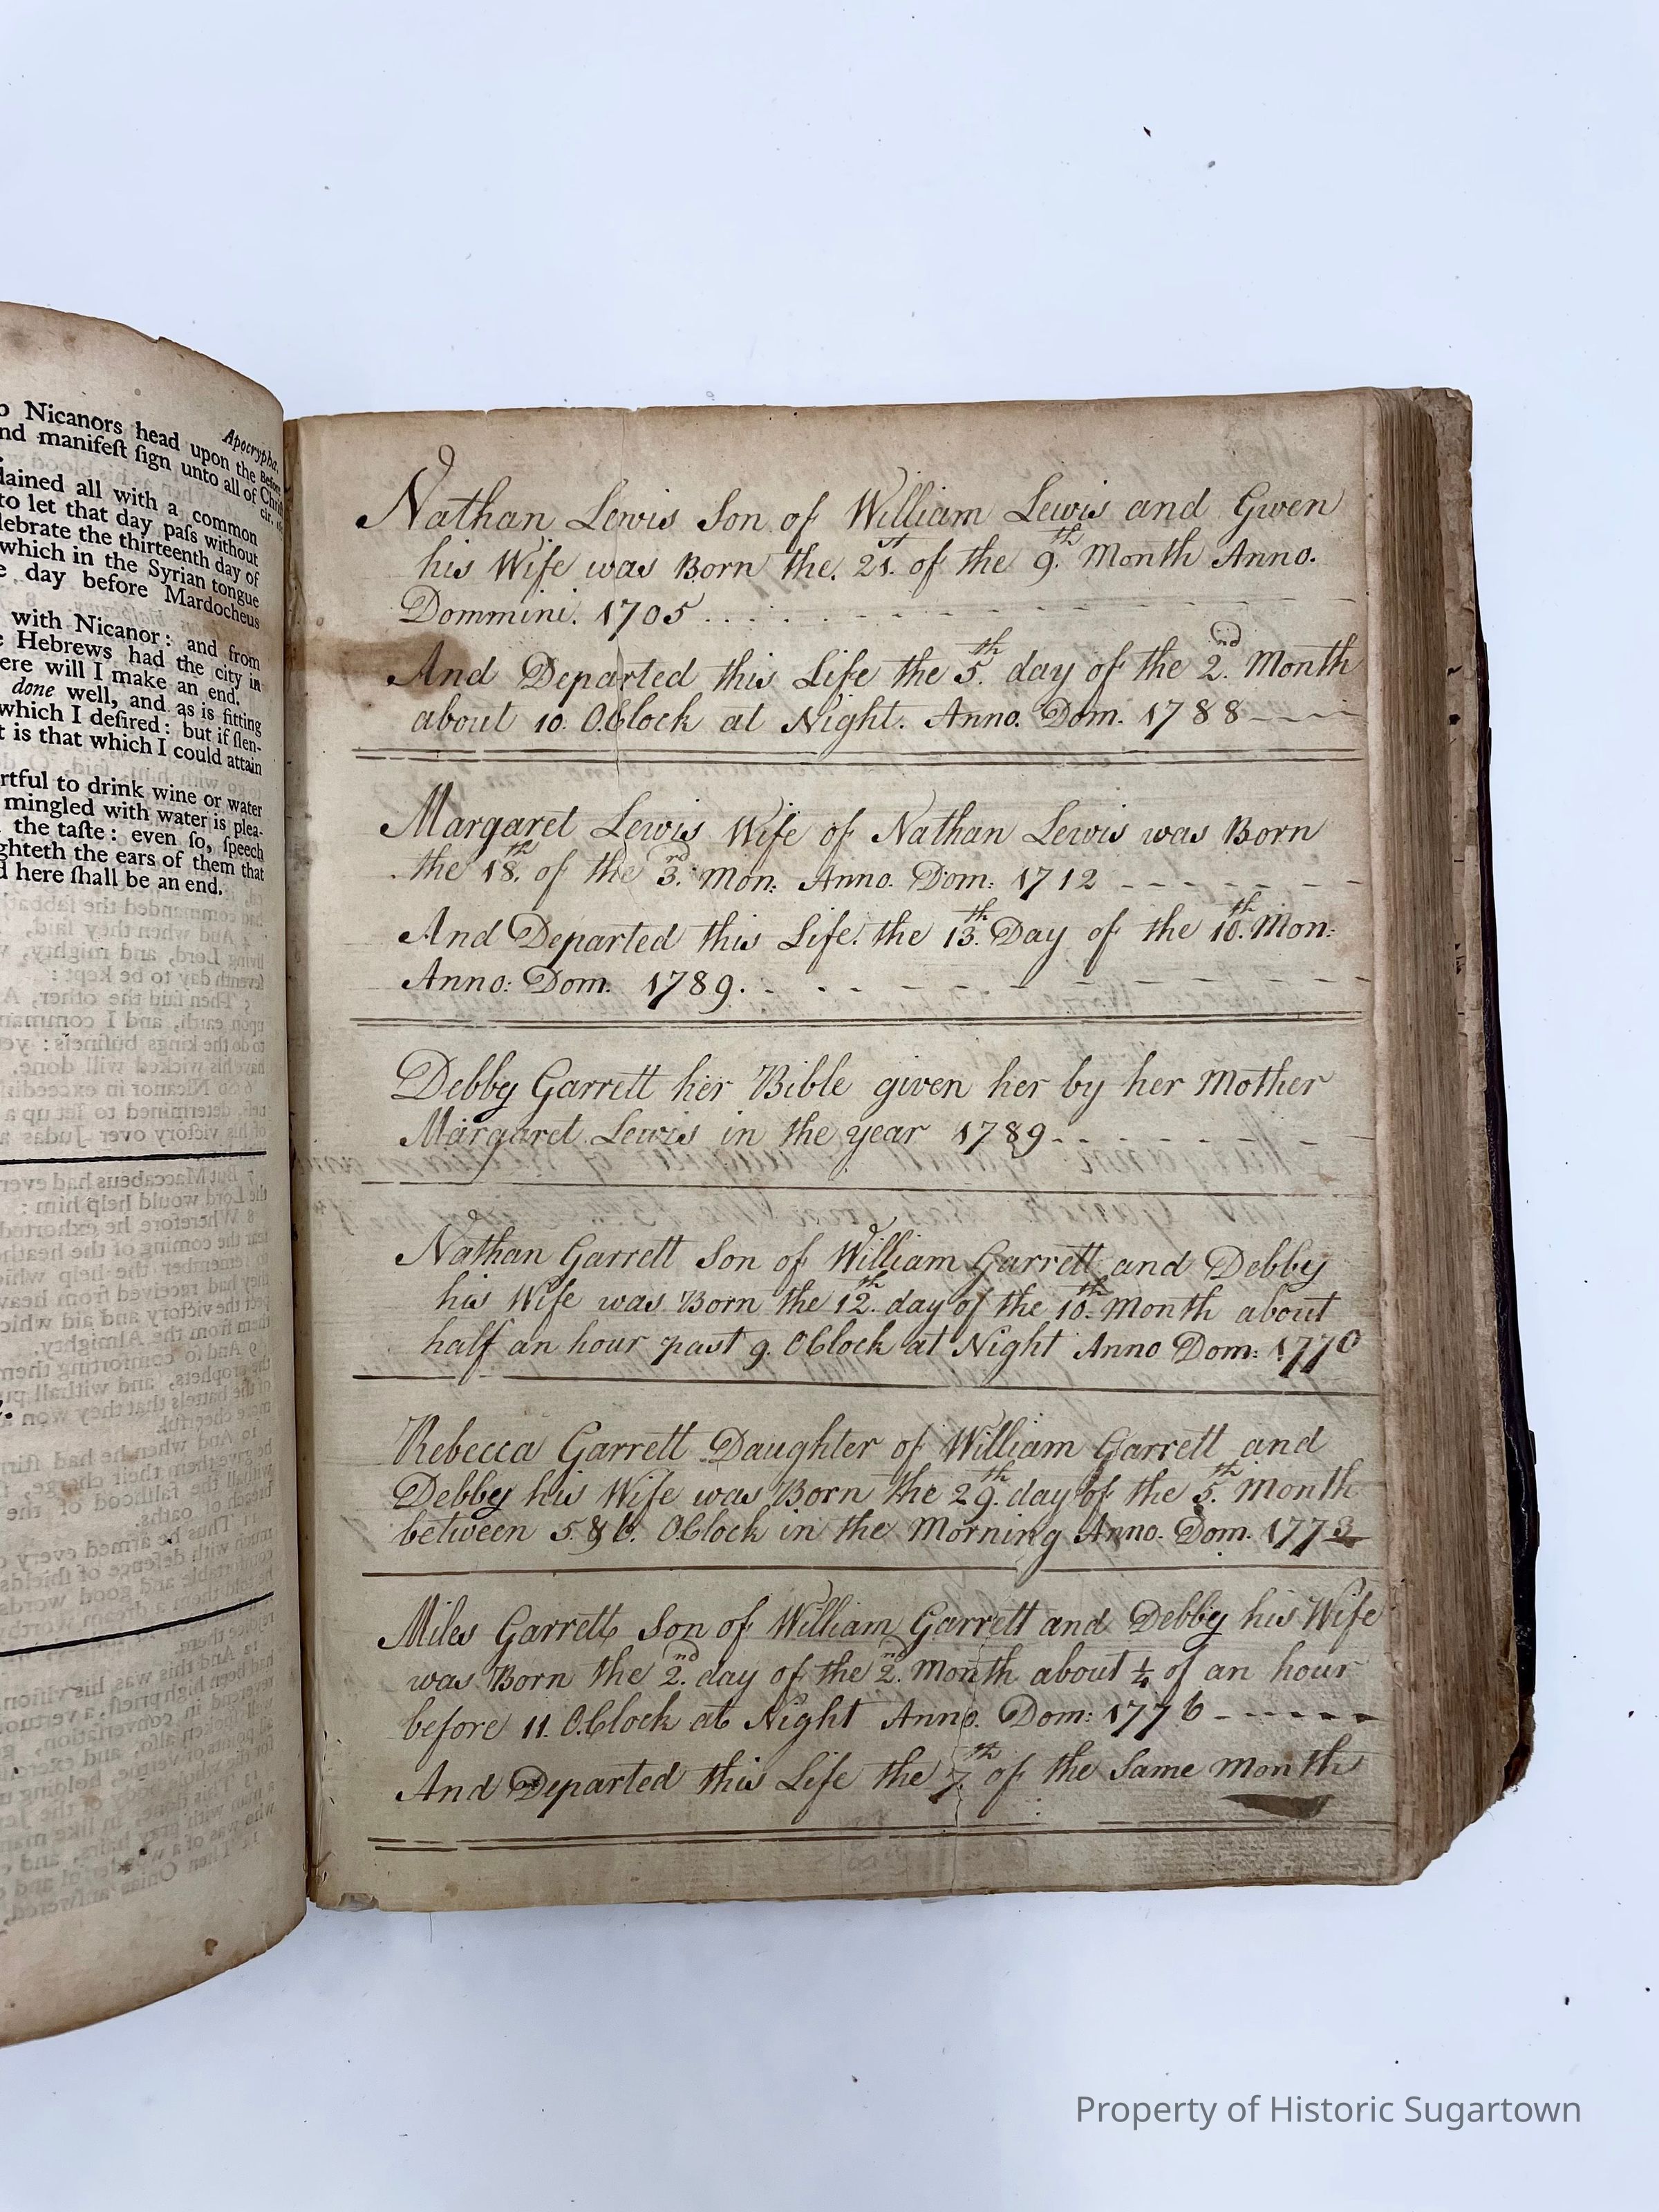 Apocrypha.
Nicanors head upon the
manifest sign unto all of
Before
Christ
cir.
all with a common
to let that day pass without
celebrate the thirteenth day of
which in the Syrian tongue
day before Mardocheus
with Nicanor: and from
Hebrews had the city in
will I make an end.
done well, and as is fitting
which I desired: but if slen-
is that which I could attain
to drink wine or water
mingled with water is plea-
the taste: even so, speech
the ears of them that
here shall be an end.
Nathan Lewis Son of William Lewis and Gwen
his Wife was Born the. 21.st of the 9.th Month Anno.
Dommini. 1705
And Departed this Life the 5.th day of the 2.nd Month
about 10. O.Clock at Night. Anno. Dom. 1788
Margaret Lewis Wife of Nathan Lewis was Born
the 18.th of the 3.rd Mon: Anno. Dom: 1712
And Departed this Life. the 13.th Day of the 10.th Mon:
Anno: Dom. 1789.
Debby Garrett her Bible given her by her Mother
Margaret Lewis in the year 1789
Nathan Garrett Son of William Garrett and Debby
his Wife was Born the 12.th day of the 10.th Month about
half an hour past 9. OClock at Night Anno Dom: 1770
Rebecca Garrett Daughter of William Garrett and
Debby his Wife was Born the 29.th day of the 5.th Month
between 5. & 6. O.Clock in the Morning Anno. Dom. 1773
Miles Garrett Son of William Garrett and Debby his Wife
was Born the 2.nd day of the 2.nd Month about ¼ of an hour
before 11. O.Clock at Night Anno. Dom: 1776
And Departed this Life the 7.th of the Same Month
Property of Historic Sugartown